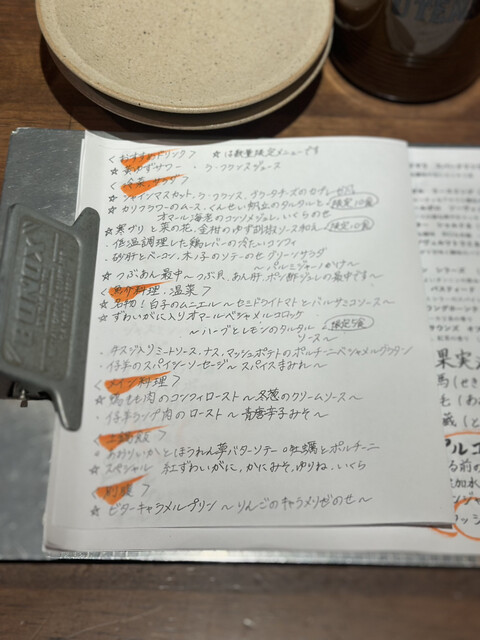 <おすすめドリンク> ☆は数量限定メニューです
☆ 黄ゆずサワー ・ ラ・フランスジュース
<冷菜・サラダ>
☆ シャインマスカット、ラ・フランス、ブッラータチーズのカプレーゼ
☆ カリフラワーのムース、くんせい帆立のタルタルと 限定10食
オマール海老のコンソメジュレ、いくらのせ
☆ 寒ブリと菜の花、金柑のゆず胡椒ソース和え 限定10食
・低温調理した鶏レバーの冷たいコンフィ
・砂肝とベーコン、木ノ子のソテーのせ グリーンサラダ
～パルミジャーノがけ～
☆ つぶあん最中 ～つぶ貝、あん肝、ポン酢ジュレの最中です～
料理・温菜>
☆ 名物!白子のムニエル ～セミドライトマトとバルサミコソース～
☆ ずわいがに入りオマールベシャメルコロッケ
～ハーブとレモンのタルタル 限定5食
ソース～
・牛スジ入りミートソース、ナス、マッシュポテトのポルチーニベシャメルグラタン
・仔羊のスパイシーソーセージ～スパイスまみれ～
<メイン料理>
☆ 鴨もも肉のコンフィロースト ～冬葱のクリームソース～
・仔羊ランプ肉のロースト ～青唐辛子みそ～
<土鍋飯>
・あおりいかとほうれん草バターソテー ・牡蠣とポルチーニ
☆ スペシャル 紅ずわいがに、かにみそ、ゆりね、いくら
<別腹>
☆ ビターキャラメルプリン ～りんごのキャラメリゼのせ～
BONOX
果実
馬(せき
毛(あ
蔵(と
アルコ
る前の
加水
ンジャ
ッシ